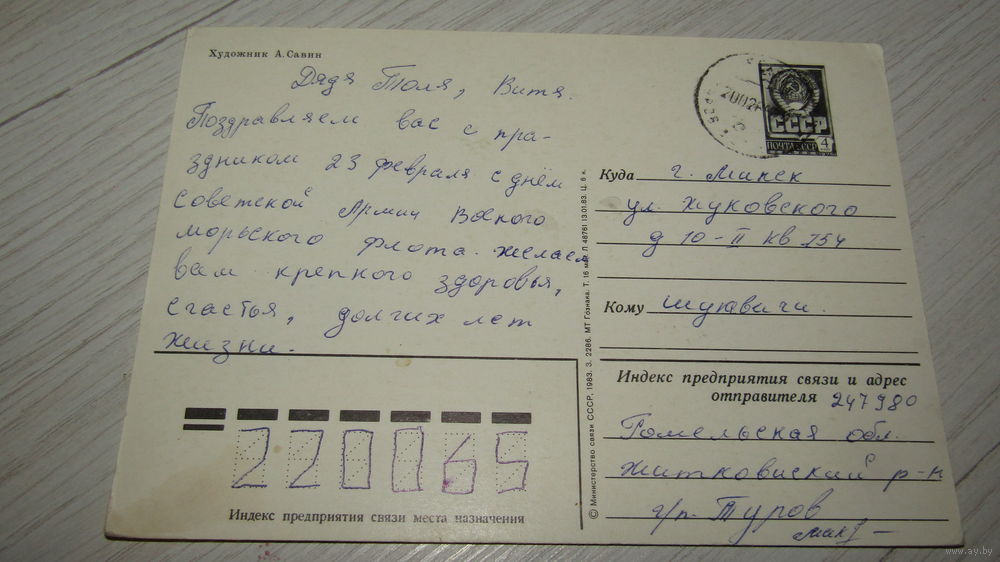 Художник А. Савин
Дядя Толя, Витя.
Поздравляем вас с пра-
здником 23 февраля с днём
советской Армии Военого
морьского флота. желаем
вам крепкого здоровья,
счастья, долгих лет
жизни.
СССР
ПОЧТА СССР 4
Куда г. Минск
ул. Жуковского
д 10-II кв 254
Кому
Индекс предприятия связи и адрес
отправителя 247980
Гомельская обл.
житковиский р-н
г/п. Туров
220065
Индекс предприятия связи места назначения
© Министерство связи СССР, 1983. З. 2286. МТ Гознака. Т. 16 млн. Л 48761 13.01.83. Ц. 6 к.
www.ay.by